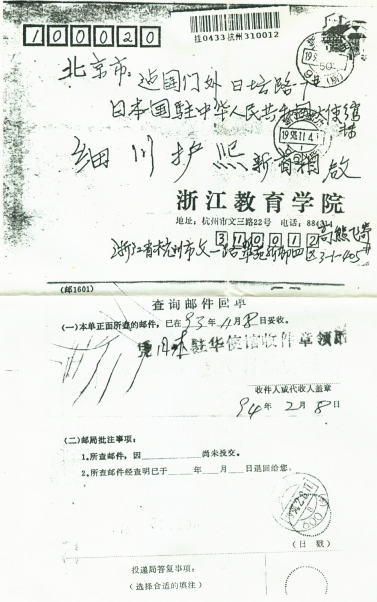 100020
挂0433杭州310012
北京市: 建国门外日坛路
日本国驻中华人民共和国大使馆
细川护熙 新首相 启
浙江教育学院
地址：杭州市文三路22号 电话：884
310012
浙江省杭州市文一路 四区3-1-405
(邮1601)
查询邮件回单
(一)本单正面所查的邮件，已在93年11月8日妥收。
驻华使馆收件章
收件人或代收人盖章
94年2月8日
(二)邮局批注事项：
1.所查邮件，因 尚未投交。
2.所查邮件经查明已于 年 月 日退回给您。
(日戳)
投递局答复事项：
(选择合适的填注)